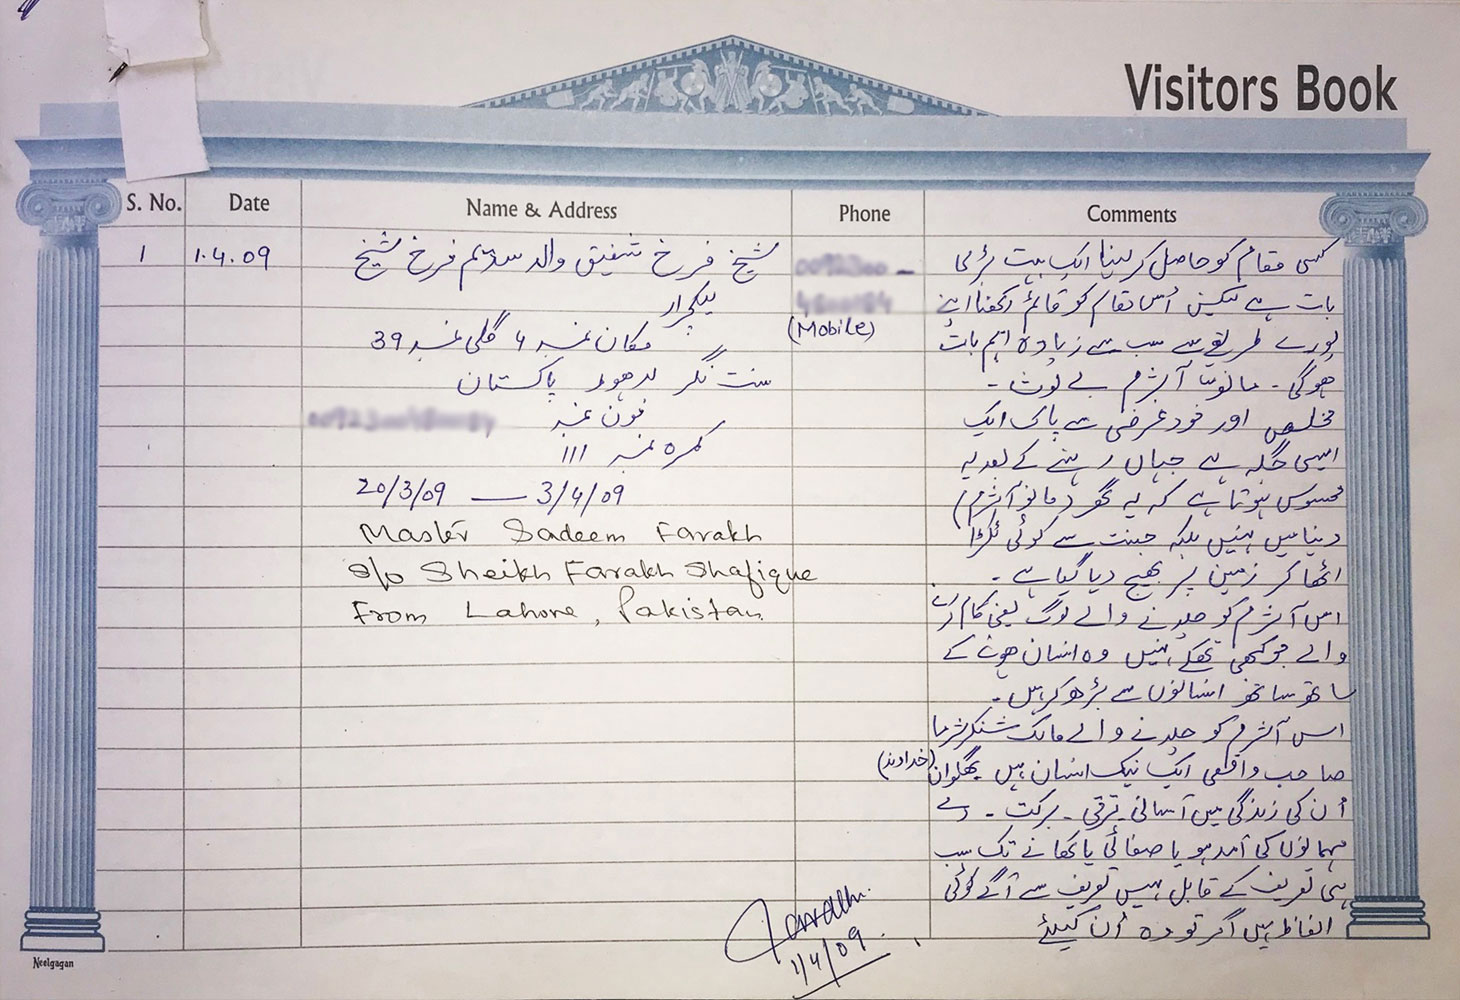 Visitors Book
S. No.
Date
Name & Address
Phone
Comments
1
1.4.09
شیخ فرخ شفیق والد سدیم فرخ شیخ
لیکچرار
مکان نمبر 4 گلی نمبر 39
سنت نگر لاھور پاکستان
فون نمبر
کمرہ نمبر 111
20/3/09 — 3/4/09
Master Sadeem Farakh
S/o Sheikh Farakh Shafique
From Lahore, Pakistan.
(Mobile)
کسی مقام کو حاصل کر لینا ایک بہت بڑی
بات ہے لیکن اُس مقام کو قائم رکھنا اپنے
پورے طریقے سے سب سے زیادہ اہم بات
ھوگی۔ مانو آشرم بے لوث۔
مخلص اور خودغرضی سے پاک ایک
ایسی جگہ ہے جہاں رہنے کے بعد یہ
محسوس ہوتا ہے کہ یہ گھر (مانو آشرم)
دنیا میں نہیں بلکہ جنت سے کوئی ٹکڑا
اٹھا کر زمین پر بھیج دیا گیا ہے۔
اس آشرم کو چلانے والے لوگ یعنی کام کرنے
والے جو کبھی تھکے نہیں وہ انسان ھونے کے
ساتھ ساتھ انسانوں سے بڑھ کر ہیں۔
اس آشرم کو چلانے والے مالک شنکر شرما
صاحب واقعی ایک نیک انسان ہیں بھگوان (خداوند)
اُن کی زندگی میں آسانی ترقی۔ برکت۔ دے
مہمانوں کی آمد ہو یا صفائی یا کھانے تک سب
ہی تعریف کے قابل ہیں تعریف سے آگے کوئی
الفاظ ہیں اگر تو وہ اُن کیلئے
1/4/09
Neelgagan